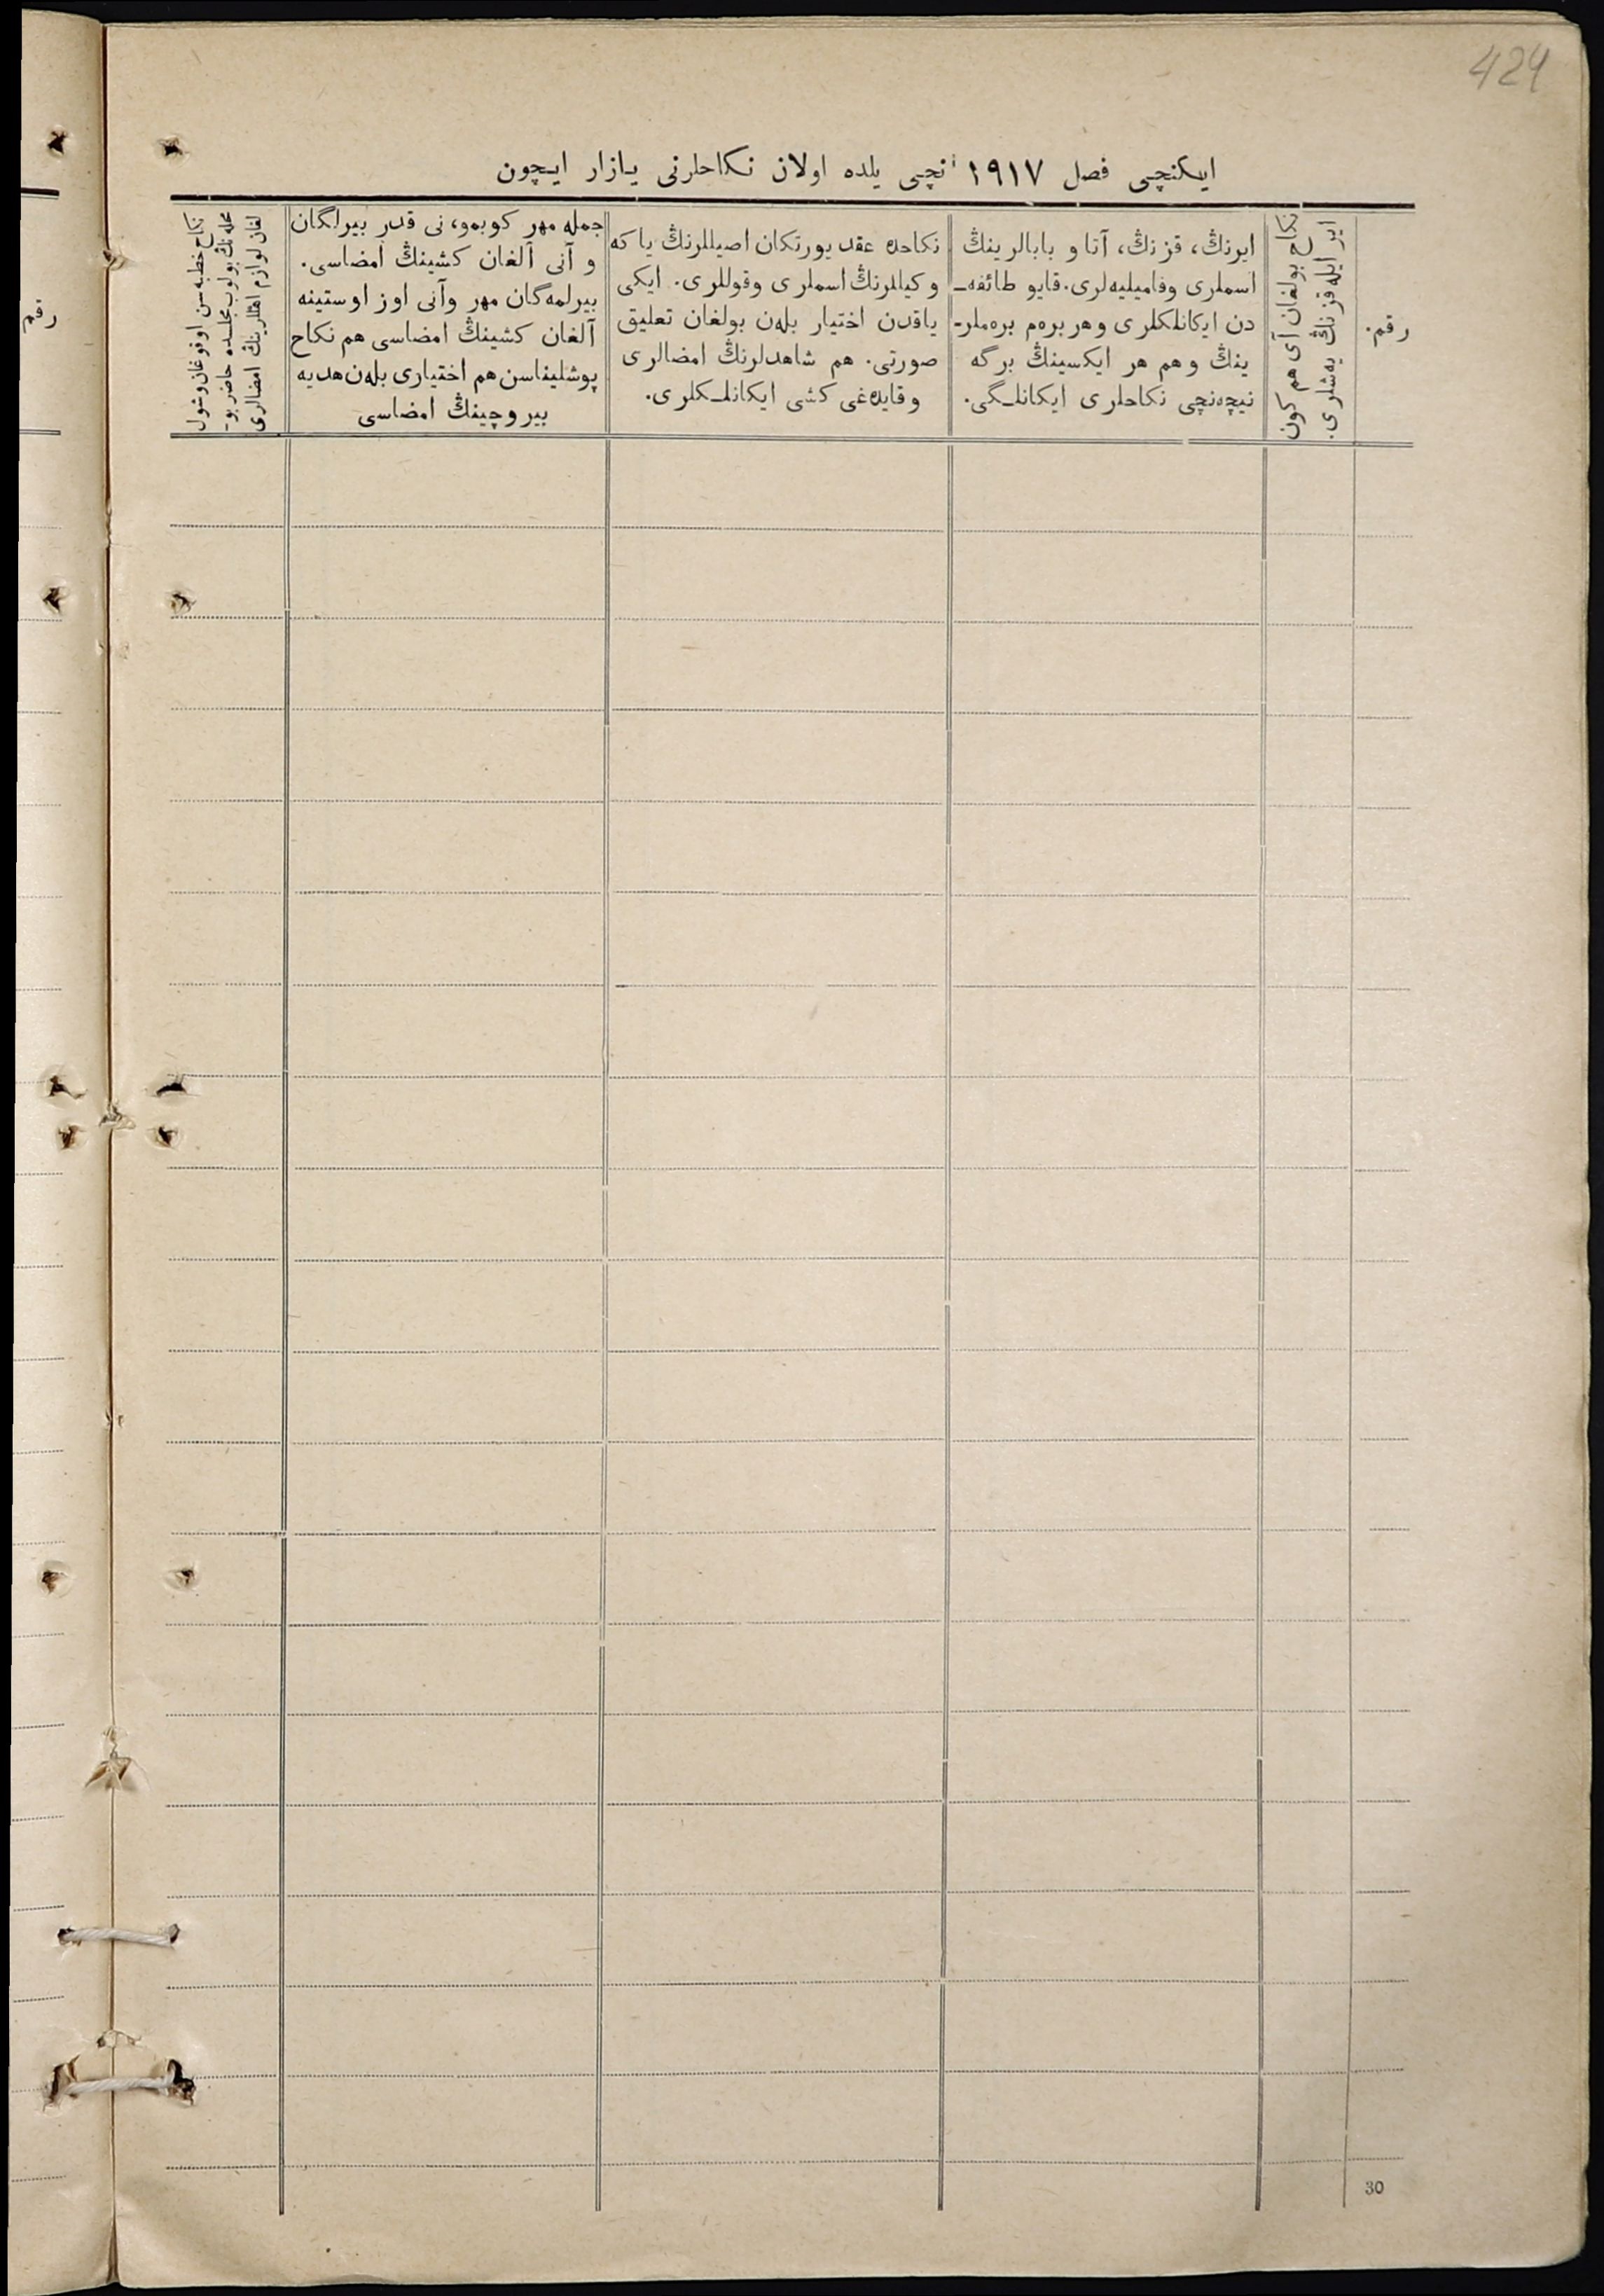 424
ایکنچی فصل ١٩١٧ نچی یلده اولان نکاحلرنی یازار ایچون
رقم.
ایر ایله قزنڭ یه‌شلری.
نکاح بولغان آی هم کون
ایرنڭ، قزنڭ، آتا و بابالرینڭ
اسملری وفامیلیه‌لری. قایو طائفه‌ـ
دن ایکانلکلری وهر بره‌م بره‌ملرـ
ینڭ وهم هر ایکسینڭ برگه
نیچه‌نچی نکاحلری ایکانلـگی.
نکاحده عقد یورتکان اصیللرنڭ یا که
وکیللرنڭ اسملری وقوللری. ایکی
یاقدن اختیار بله‌ن بولغان تعلیق
صورتی. هم شاهدلرنڭ امضالری
وقایده‌غی کشی ایکانلـکلری.
جمله مهر کوبمو، نی قدر بیرلگان
و آنی آلغان کشینڭ امضاسی.
بیرلمه‌گان مهر وآنی اوز اوستینه
آلغان کشینڭ امضاسی هم نکاح
پوشلیناسن هم اختیاری بله‌ن هدیه
بیروچینڭ امضاسی
نکاح خطبه‌سن اوقوغان وشول
محله‌نڭ بولوب مجلسده حاضر بوـ
لغان لوازم اهللرینڭ امضالری
رقم
30